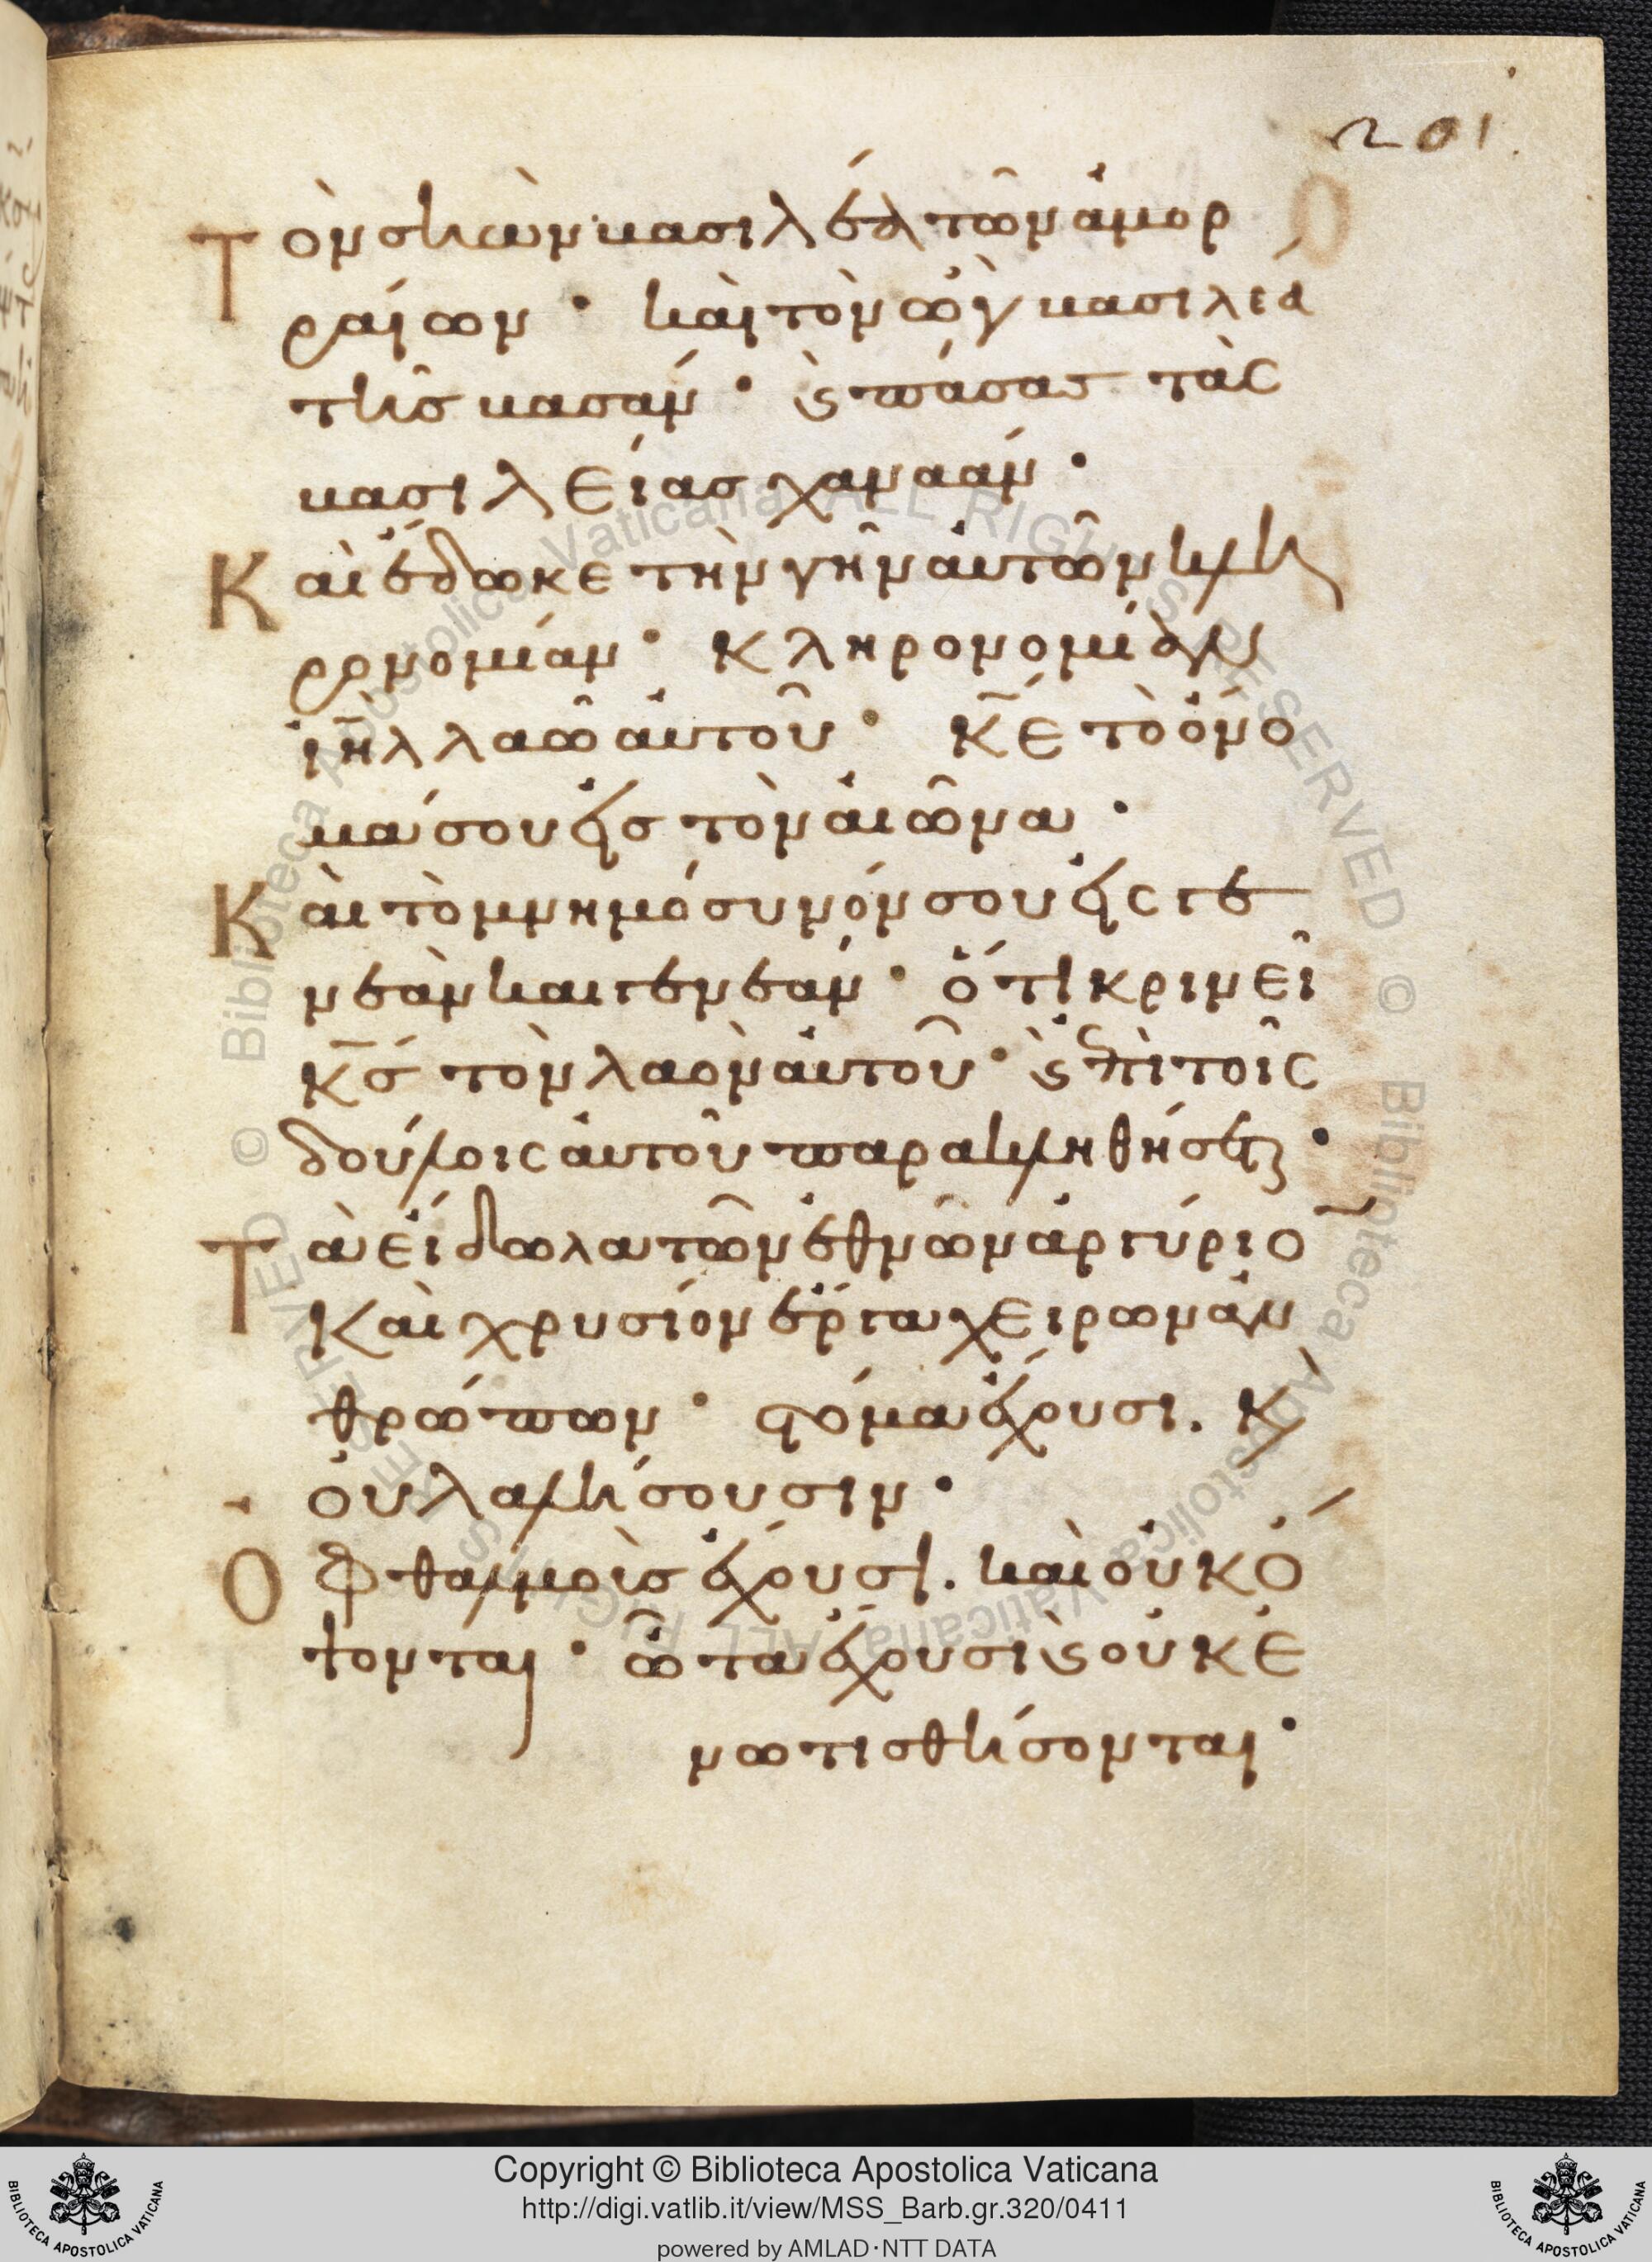 201.
Τὸν σηὼν βασιλέα τῶν ἀμορ
ραίων · καὶ τὸν ὢγ βασιλέα
τῆς βασάν · ϗ πάσας τὰς
βασιλείας χαναάν ·
Καὶ ἔδωκε τὴν γῆν αὐτῶν κλη
ρονομίαν · κληρονομίαν
ιῆλ λαῶ αὐτοῦ · κ̅ε̅ τὸ ὄνο
μά σου εἰς τὸν αἰῶνα ·
Καὶ τὸ μνημόσυνόν σου εἰς γε
νεὰν καὶ γενεάν · ὅτι κρινεῖ
κ̅ς̅ τὸν λαὸν αὐτοῦ · ϗ ἐπὶ τοῖς
δούλοις αὐτοῦ παρακληθήσεται ·
Τὰ εἴδωλα τῶν ἐθνῶν ἀργύριο̅
καὶ χρυσίον ἔργα χειρῶν ἀν
θρώπων · στόμα ἔχουσι. κ(αὶ)
οὐ λαλήσουσιν ·
Ὀφθαλμοὺς ἔχουσι. καὶ οὐκ ὄ
ψονται · ὦτα ἔχουσι ϗ οὐκ ἐ
νωτισθήσονται ·
Copyright © Biblioteca Apostolica Vaticana
http://digi.vatlib.it/view/MSS_Barb.gr.320/0411
powered by AMLAD·NTT DATA
BIBLIOTECA APOSTOLICA VATICANA
BIBLIOTECA APOSTOLICA VATICANA
© Biblioteca Apostolica Vaticana ALL RIGHTS RESERVED © Biblioteca Apostolica Vaticana ALL RIGHTS RESERVED